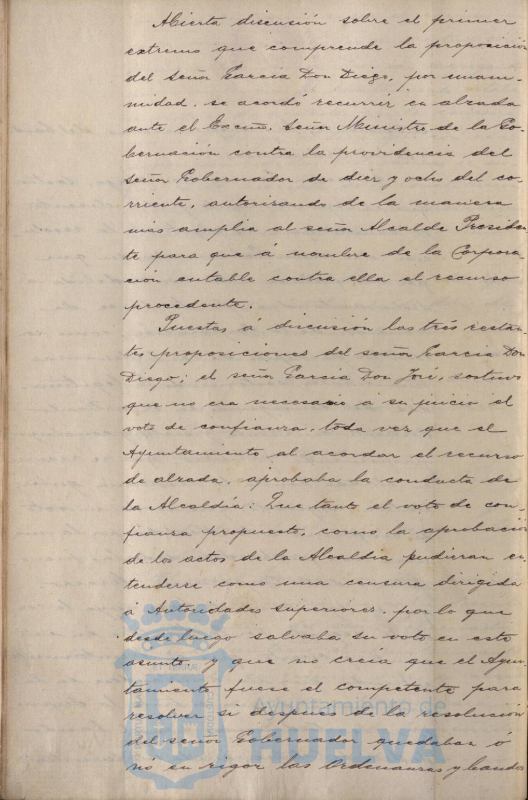 Abierta discusión sobre el primer
extremo que comprende la proposición
del señor García Don Diego, por unani-
midad, se acordó recurrir en alzada
ante el Excmo. Señor Ministro de la Go-
bernación contra la providencia del
señor Gobernador de diez y ocho del co-
rriente, autorizando de la manera
mas amplia al señor Alcalde Presiden-
te para que á nombre de la Corpora-
ción entable contra ella el recurso
procedente.
Puestas á discusión las trés restan-
tes proposiciones del señor García Don
Diego; el señor García Don José, sostuvo
que no era necesario á su juicio el
voto de confianza, toda vez que el
Ayuntamiento al acordar el recurso
de alzada, aprobaba la conducta de
la Alcaldía: Que tanto el voto de con-
fianza propuesto, como la aprobación
de los actos de la Alcaldía pudieran en-
tenderse como una censura dirigida
á Autoridades superiores, por lo que
desde luego salvaba su voto en este
asunto, y que no creia que el Ayun-
tamiento fuese el competente para
resolver si despues de la resolución
del señor Gobernador quedaban ó
nó en rigor las Ordenanzas y bandos
Ayuntamiento de
HUELVA